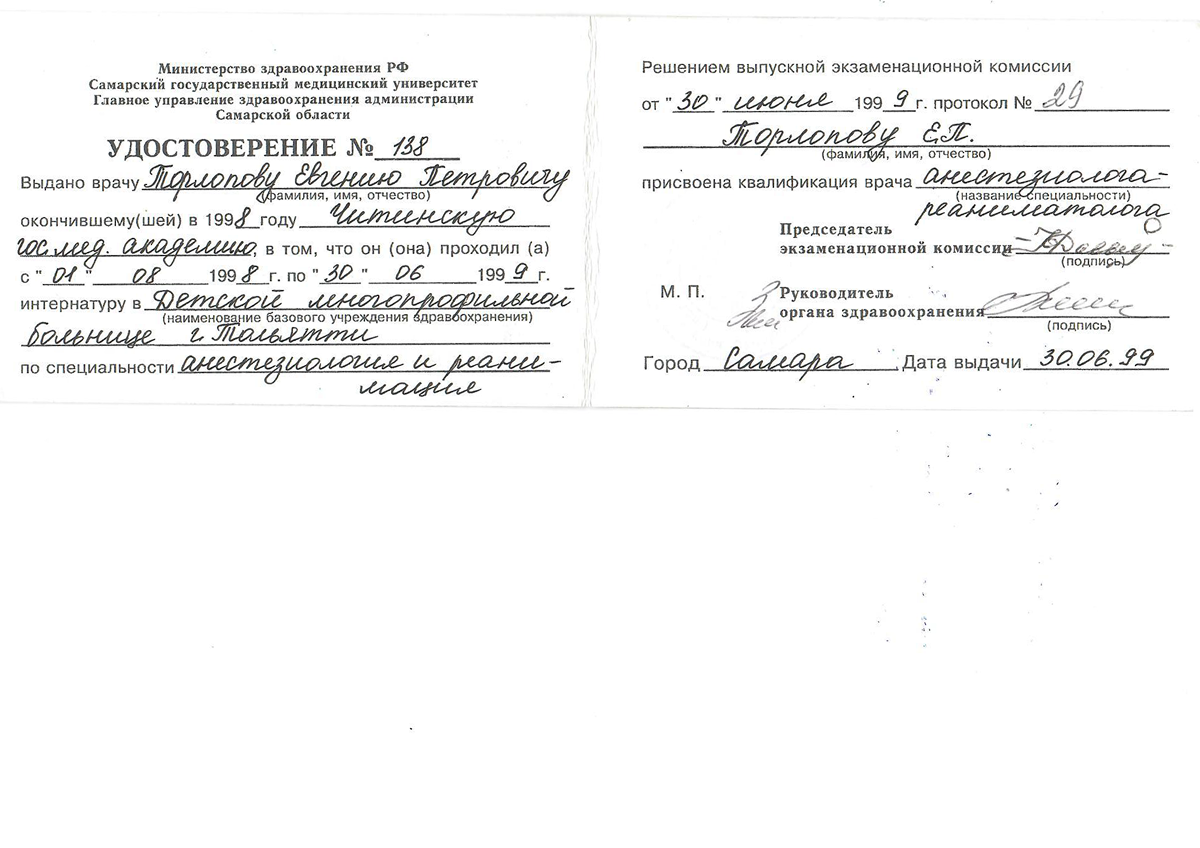 Министерство здравоохранения РФ
Самарский государственный медицинский университет
Главное управление здравоохранения администрации
Самарской области
УДОСТОВЕРЕНИЕ № 138
Выдано врачу Торлопову Евгению Петровичу
(фамилия, имя, отчество)
окончившему(шей) в 1998 году Читинскую
гос. мед. академию, в том, что он (она) проходил (а)
с "01" 08 1998 г. по "30" 06 1999 г.
интернатуру в Детской многопрофильной
(наименование базового учреждения здравоохранения)
больнице г. Тольятти
по специальности анестезиология и реани-
мация
Решением выпускной экзаменационной комиссии
от "30" июня 1999 г. протокол № 29
Торлопову Е.П.
(фамилия, имя, отчество)
присвоена квалификация врача анестезиолога-
(название специальности)
реаниматолога
Председатель
экзаменационной комиссии
(подпись)
М. П. Руководитель
органа здравоохранения
(подпись)
Город Самара Дата выдачи 30.06.99